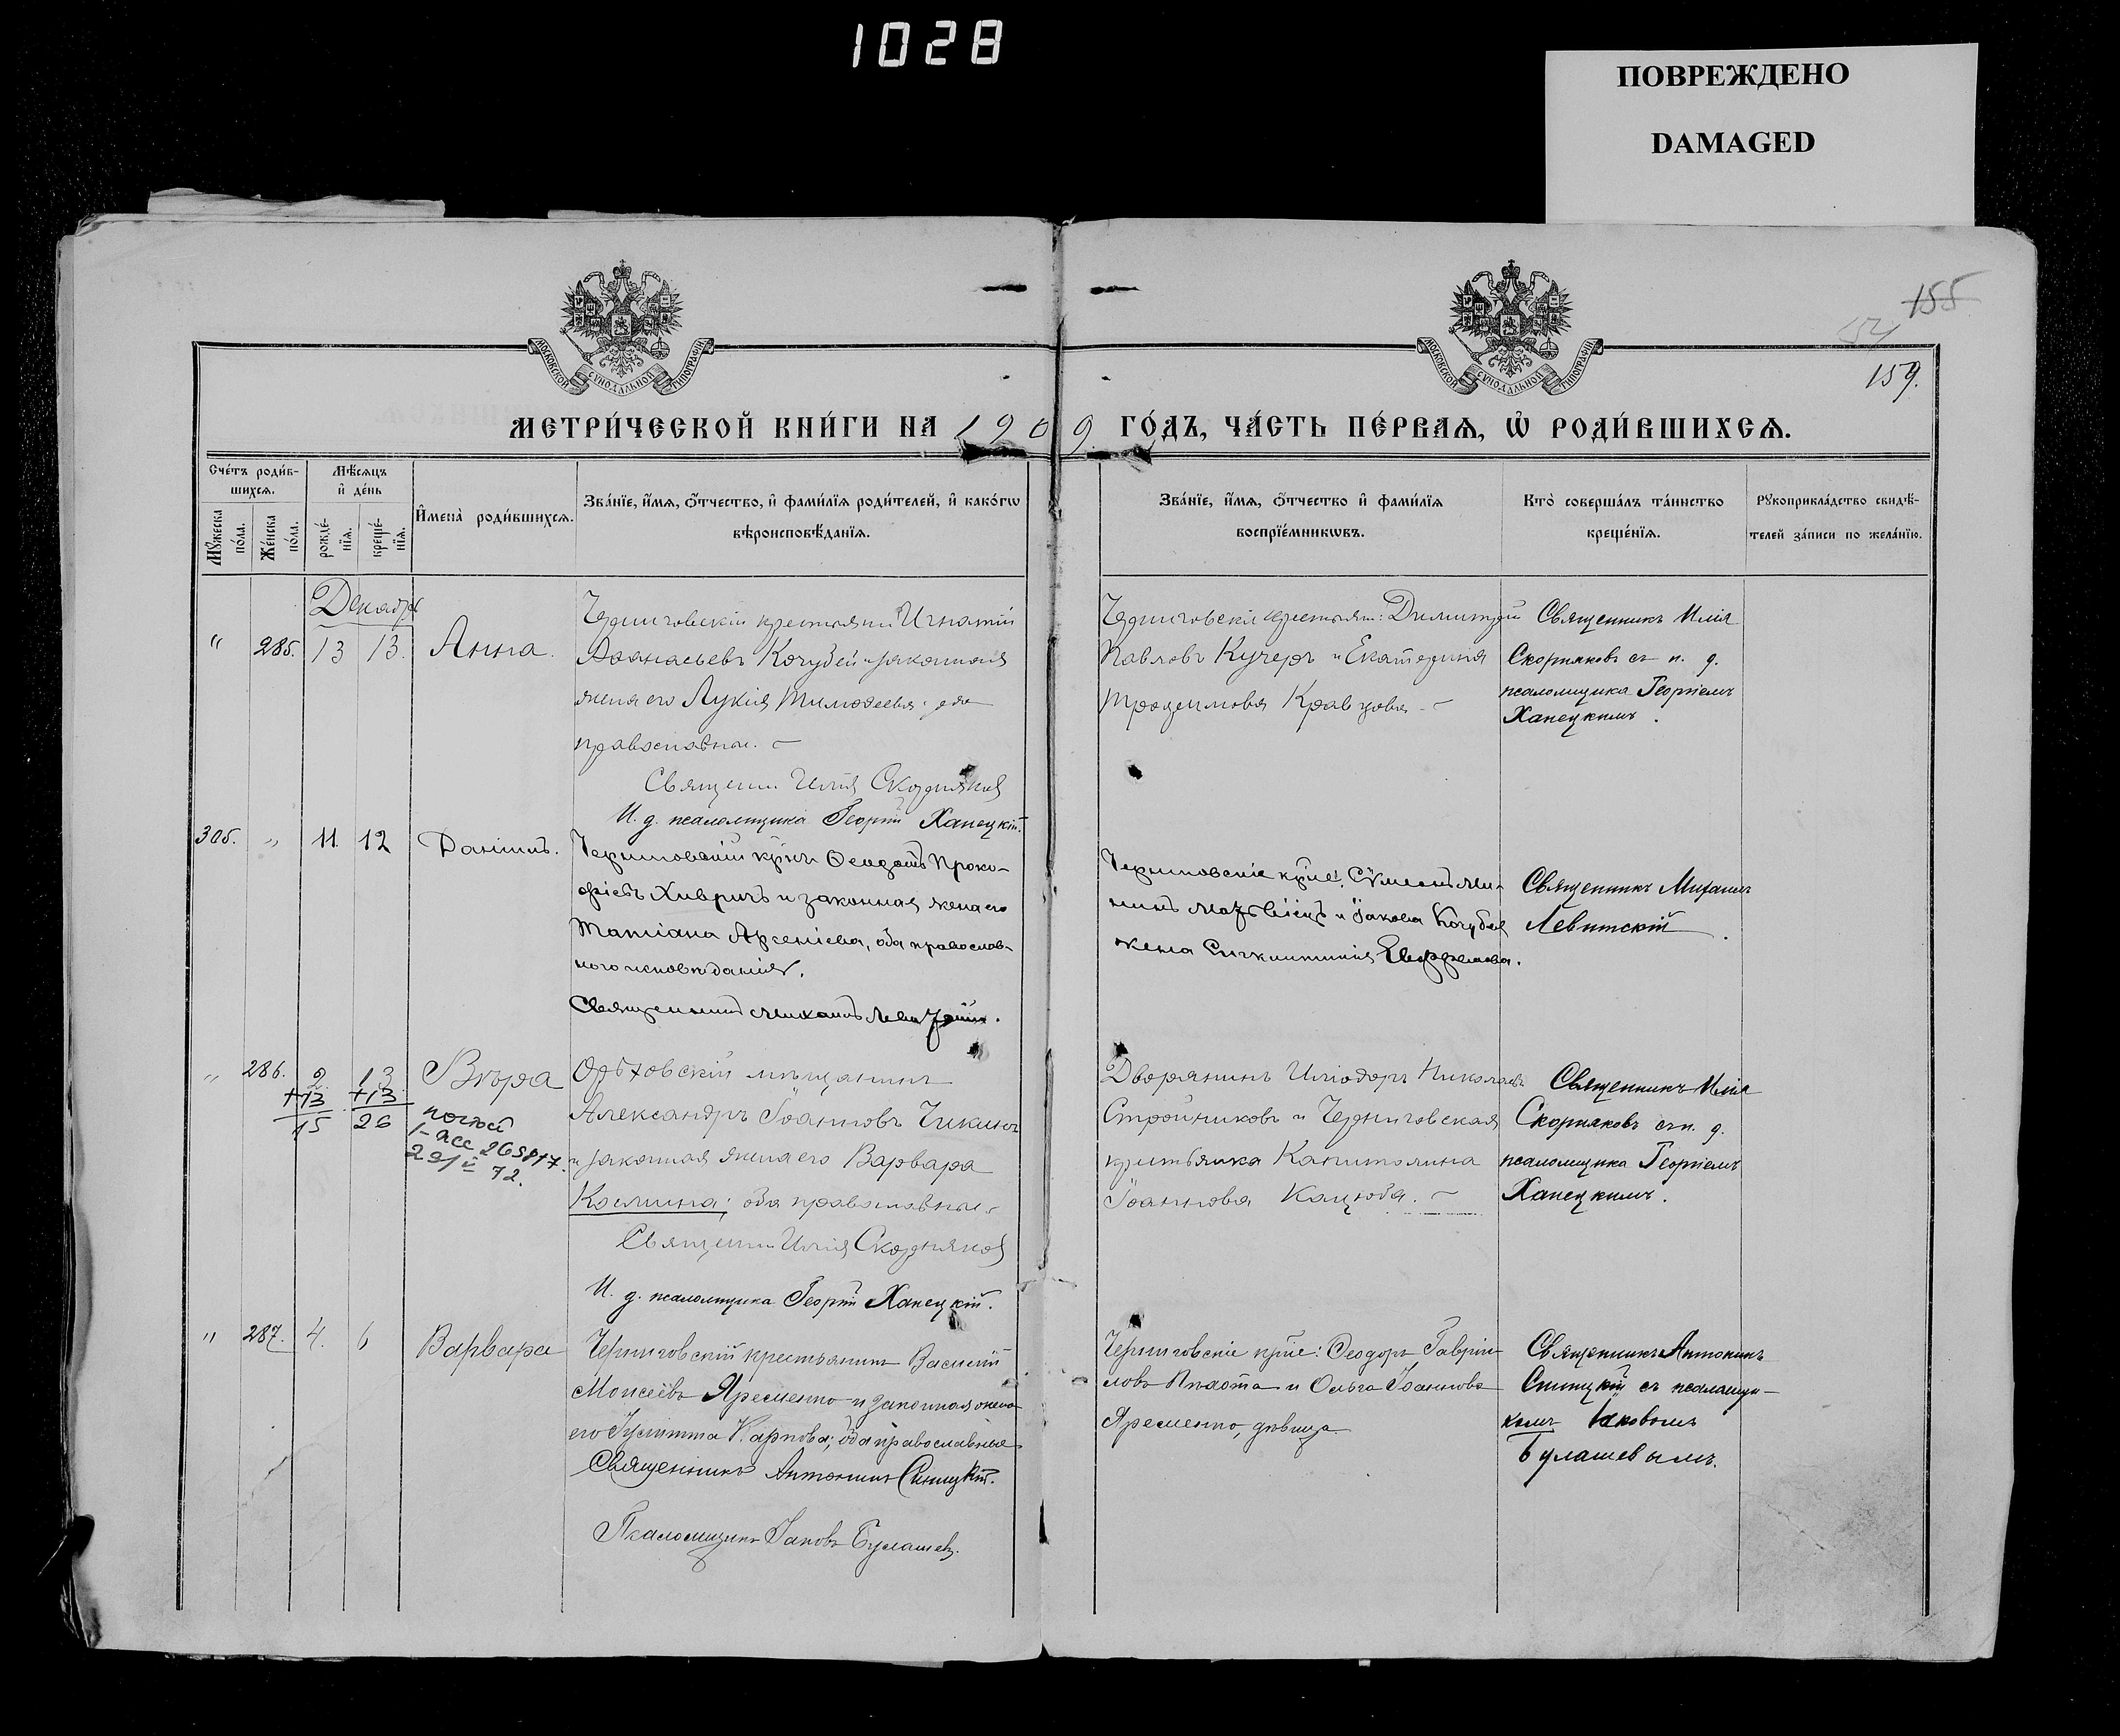 1028
ПОВРЕЖДЕНО
DAMAGED
155
159.
МОСКОВСКОЙ СѴНОДАЛЬНОЙ ТИПОГРАФІИ
МОСКОВСКОЙ СѴНОДАЛЬНОЙ ТИПОГРАФІИ
МЕТРИ́ЧЕСКОЙ КНИ́ГИ НА 1909 ГО́ДЪ, ЧА́СТЬ ПЕ́РВАЯ, Ѡ҆ РОДИ́ВШИХСЯ.
Сче́тъ роди́в-
шихся.
Мѣ́сяцъ
и҆ де́нь
Мꙋ́жеска по́ла.
Же́нска по́ла.
рожде́-
нїя.
креще́-
нїя.
И҆мена̀ роди́вшихся.
Зва́нїе, и҆́мя, ѻ҆́тчество, и҆ фами́лїя роди́телей, и҆ како́гѡ
вѣроисповѣ́данїя.
Зва́нїе, и҆́мя, ѻ҆́тчество и҆ фами́лїя
воспрїе́мникѡвъ.
Кто̀ соверша́лъ та́инство
креще́нїя.
Рꙋкоприкла́дство свидѣ́-
телей за́писи по жела́нїю.
Декабрь
" 285. 13 13. Анна.
Черниговскій крестьянин Игнатій
Аѳанасьевъ Кочубей и законная
жена его Лукія Тимоѳеева: оба
православные.
Священ. Илія Скорняков
И. д. псаломщика Георгій Ханецкій.
Черниговскіе крестьян: Димитрій
Павловъ Кучеръ и Екатерина
Трофимова Кравцова
Священникъ Илія
Скорняковъ съ и. д.
псаломщика Георгіемъ
Ханецкимъ.
306. " 11. 12 Даніилъ.
Черниговскій кр̃нъ Ѳеодотъ Проко-
фіевъ Хивричъ и законная жена его
Татіана Арсеніева, оба православ-
ного исповѣданія.
Священникъ Михаилъ
Черниговскіе кр̃не:
и Іакова Кочубея
жена Синклитикія
Священникъ Михаилъ
Левитскій.
" 286. 2. 13. Вѣра
+13 +13
15 26
1-АСС 265817.
72.
Орѣховскій мѣщанинъ
Александръ Іоанновъ Чикинъ
и законная жена его Варвара
Космина; оба православные.
Священ. Илія Скорняков
И. д. псаломщика Георгій Ханецкій.
Дворянинъ Иліодоръ Николаевъ
Стройниковъ и Черниговская
крестьянка Капитолина
Іоаннова Кацюба.
Священникъ Илія
Скорняковъ съ и. д.
псаломщика Георгіемъ
Ханецкимъ.
" 287. 4. 6 Варвара
Черниговскій крестьянинъ Василій
Моисеевъ Яременко и законная жена
его Іулитта Карпова; оба православные
Священникъ Антонинъ Синицкій.
Псаломщикъ Іаковъ Булашевъ.
Черниговскіе кр̃не: Ѳеодоръ Гавріи-
ловъ Плахота и Ольга Іоаннова
Яременко, дѣвица.
Священникъ Антонинъ
Синицкій съ псаломщи-
комъ Іаковомъ
Булашевымъ.